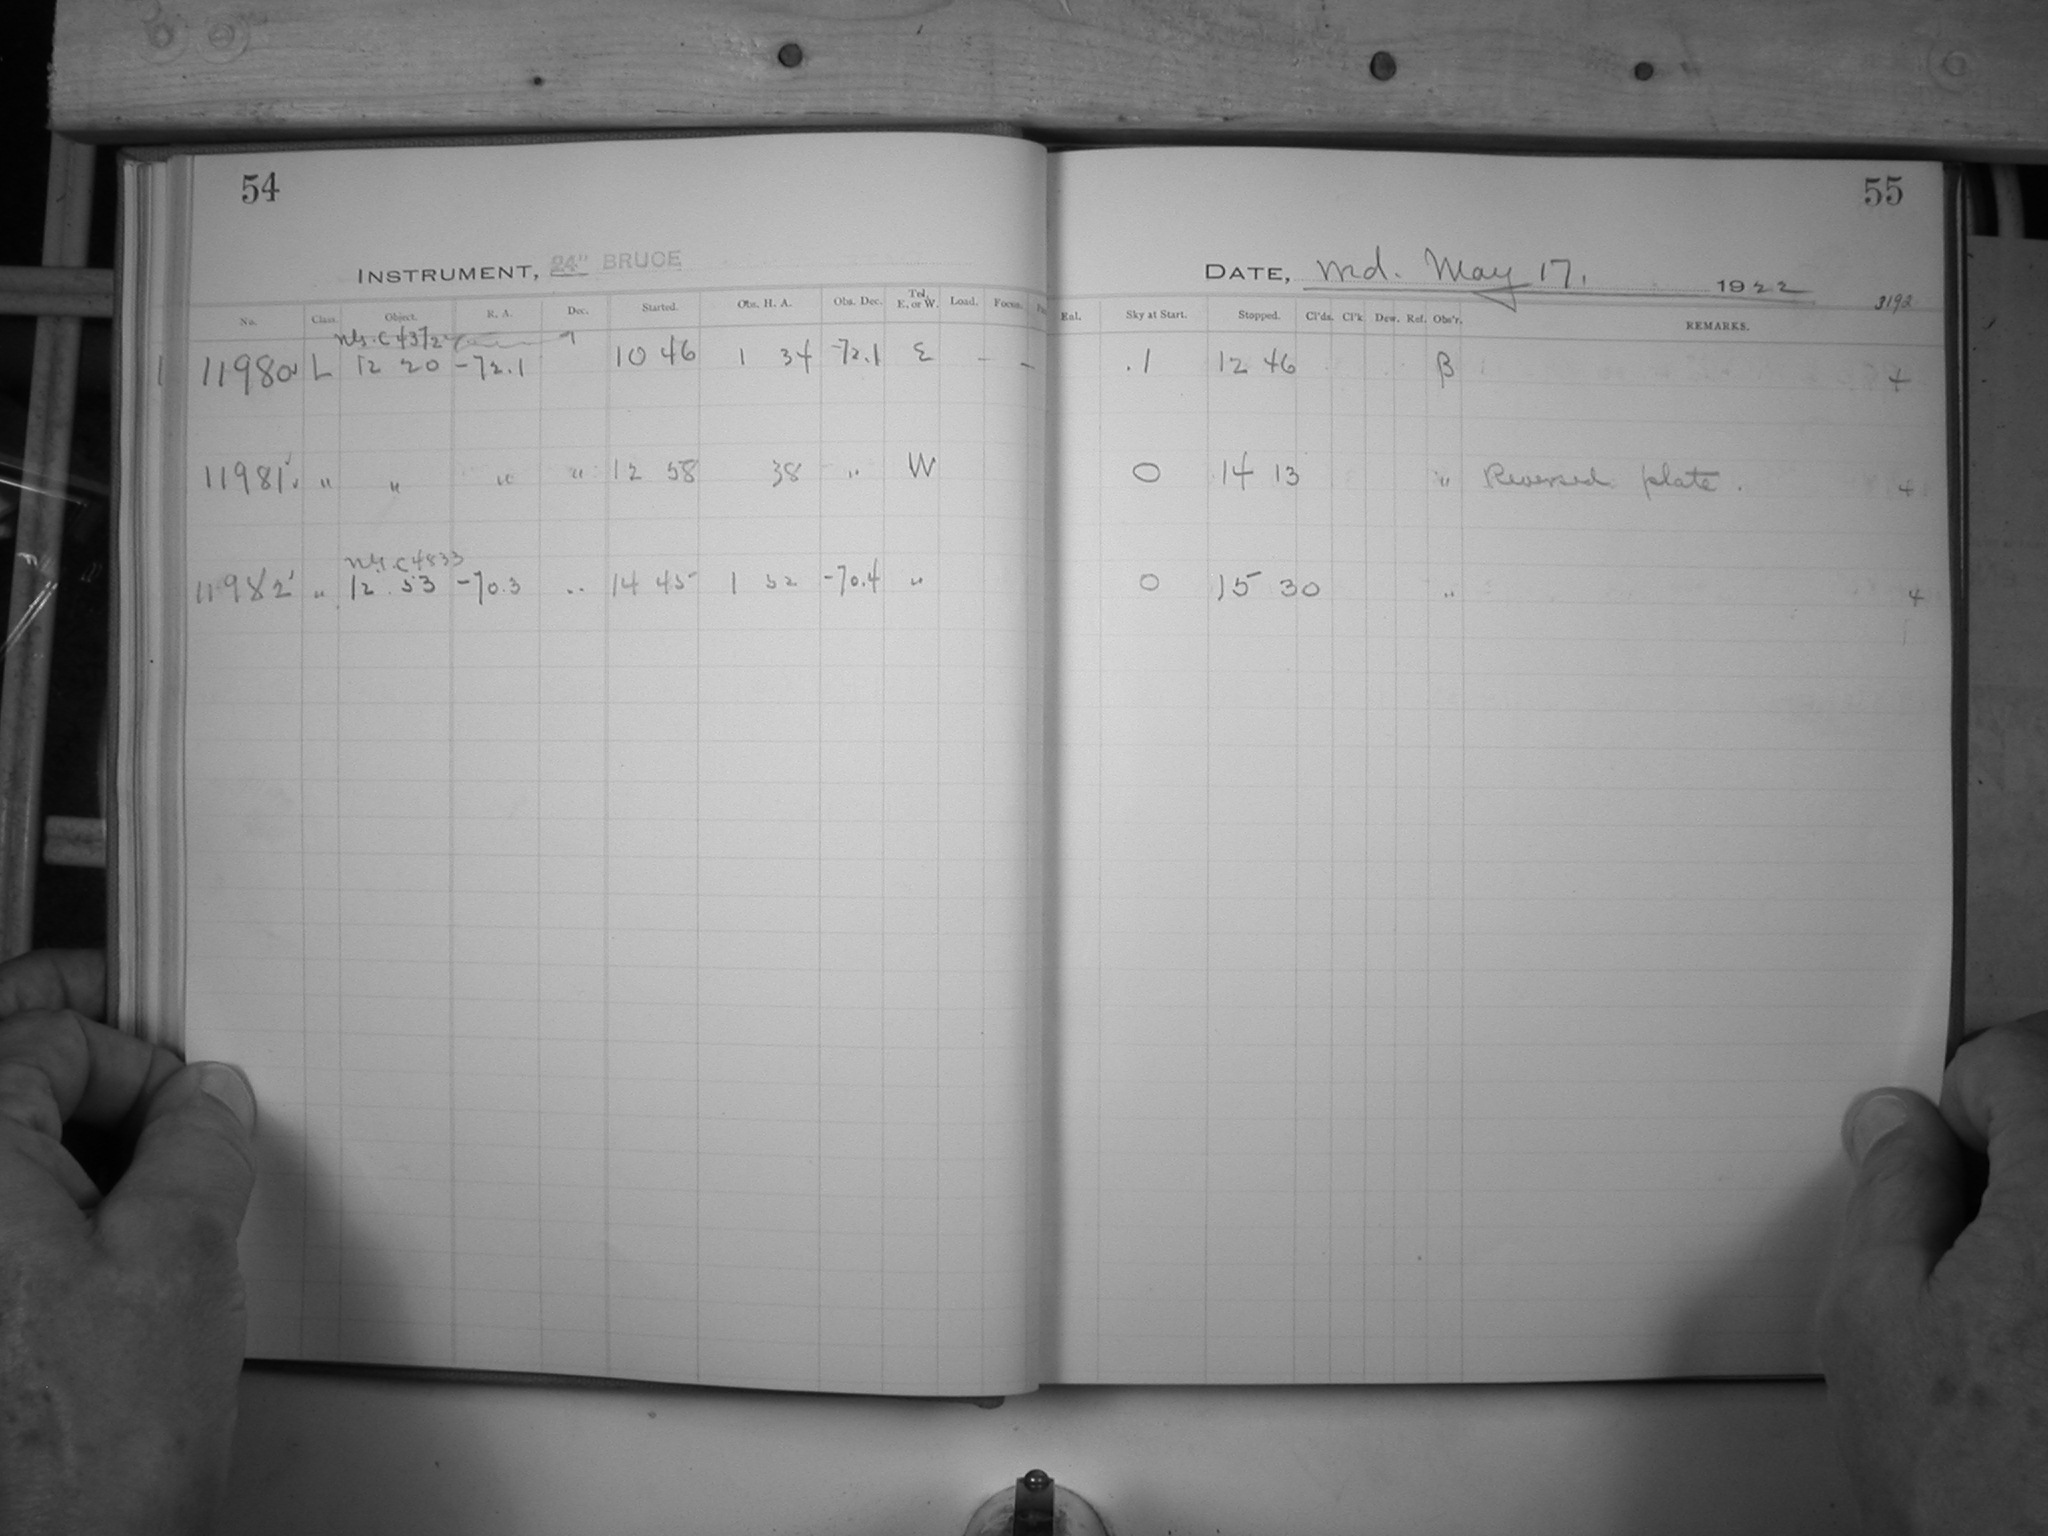 54
INSTRUMENT, 24" BRUCE
No. Class. Object. R. A. Dec. Started. Obs. H. A. Obs. Dec. Tel. E. or W. Load. Focus.
N.G.C 4372
11980 L 12 20 -72.1 10 46 1 34 -72.1 E - -
11981 " " " " 12 58 38 " W
N.G.C 4833
11982 " 12 53 -70.3 " 14 45 1 52 -70.4 "
55
DATE, Wd. May 17, 1922
3192
Eal. Sky at Start. Stopped. Cl'ds. Cl'k Dew. Ref. Obs'r. REMARKS.
.1 12 46 β +
0 14 13 " Reversed plate. +
0 15 30 " +